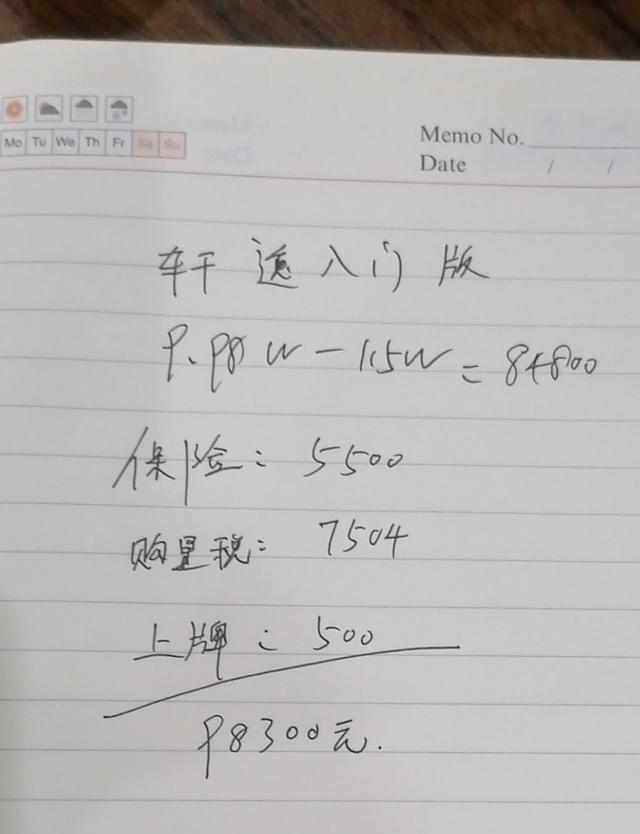 Mo Tu We Th Fr Sa Su
Memo No.
Date / /
轩逸入门版
9.98W-1.5W=84800
保险:5500
购置税:7504
上牌:500
98300元.